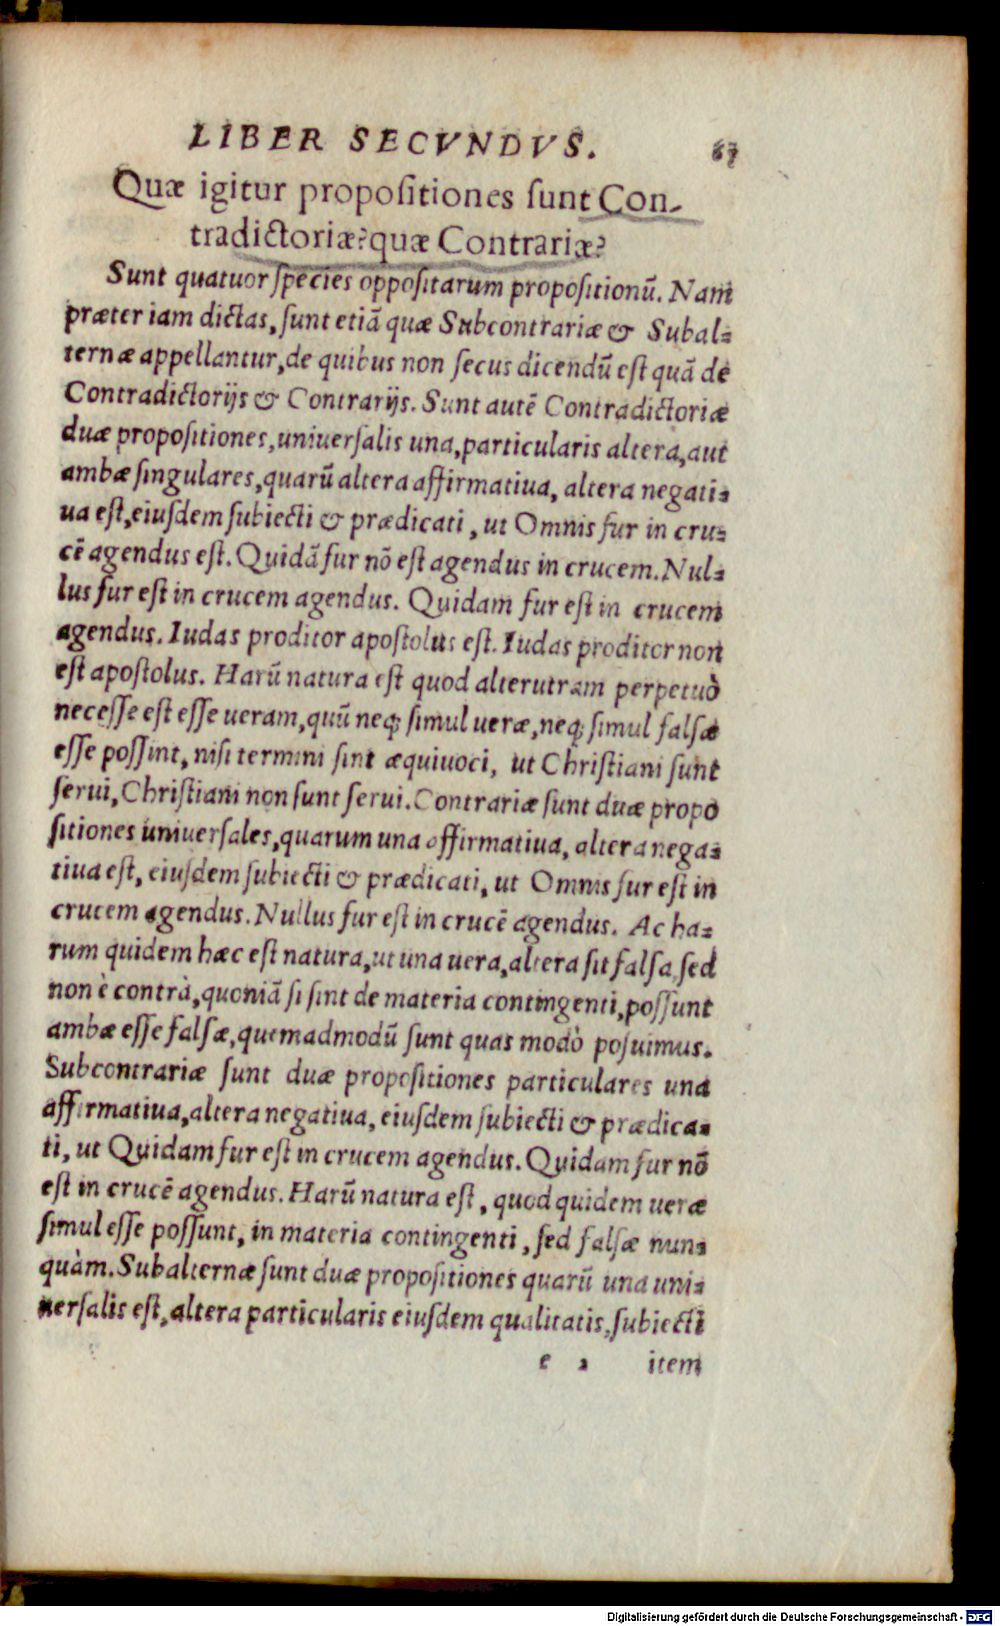 LIBER SECVNDVS. 67
Quæ igitur propoſitiones ſunt Con-
tradictoriæ? quæ Contrariæ?
Sunt quatuor ſpecies oppoſitarum propoſitionũ. Nam
præter iam dictas, ſunt etiã quæ Subcontrariæ & Subal-
ternæ appellantur, de quibus non ſecus dicendũ eſt quã de
Contradictorijs & Contrarijs. Sunt autẽ Contradictoriæ
duæ propoſitiones, uniuerſalis una, particularis altera, aut
ambæ ſingulares, quarũ altera affirmatiua, altera negati-
ua eſt, eiuſdem ſubiecti & prædicati, ut Omnis fur in cru-
cẽ agendus eſt. Quidã fur nõ eſt agendus in crucem. Nul-
lus fur eſt in crucem agendus. Quidam fur eſt in crucem
agendus. Iudas proditor apoſtolus eſt. Iudas proditor non
eſt apoſtolus. Harũ natura eſt quod alterutram perpetuò
neceſſe eſt eſſe ueram, quũ neq; ſimul ueræ, neq; ſimul falſæ
eſſe poſſint, niſi termini ſint æquiuoci, ut Chriſtiani ſunt
ſerui, Chriſtiani non ſunt ſerui. Contrariæ ſunt duæ propo
ſitiones uniuerſales, quarum una affirmatiua, altera nega-
tiua eſt, eiuſdem ſubiecti & prædicati, ut Omnis fur eſt in
crucem agendus. Nullus fur eſt in crucẽ agendus. Ac ha-
rum quidem hæc eſt natura, ut una uera, altera ſit falſa, ſed
non è contrà, quoniã ſi ſint de materia contingenti, poſſunt
ambæ eſſe falſæ, quemadmodũ ſunt quas modò poſuimus.
Subcontrariæ ſunt duæ propoſitiones particulares una
affirmatiua, altera negatiua, eiuſdem ſubiecti & prædica-
ti, ut Quidam fur eſt in crucem agendus. Quidam fur nõ
eſt in crucẽ agendus. Harũ natura eſt, quod quidem ueræ
ſimul eſſe poſſunt, in materia contingenti, ſed falſæ nun-
quàm. Subalternæ ſunt duæ propoſitiones quarũ una uni-
uerſalis eſt, altera particularis eiuſdem qualitatis, ſubiecti
e 2 item
Digitalisierung gefördert durch die Deutsche Forschungsgemeinschaft - DFG